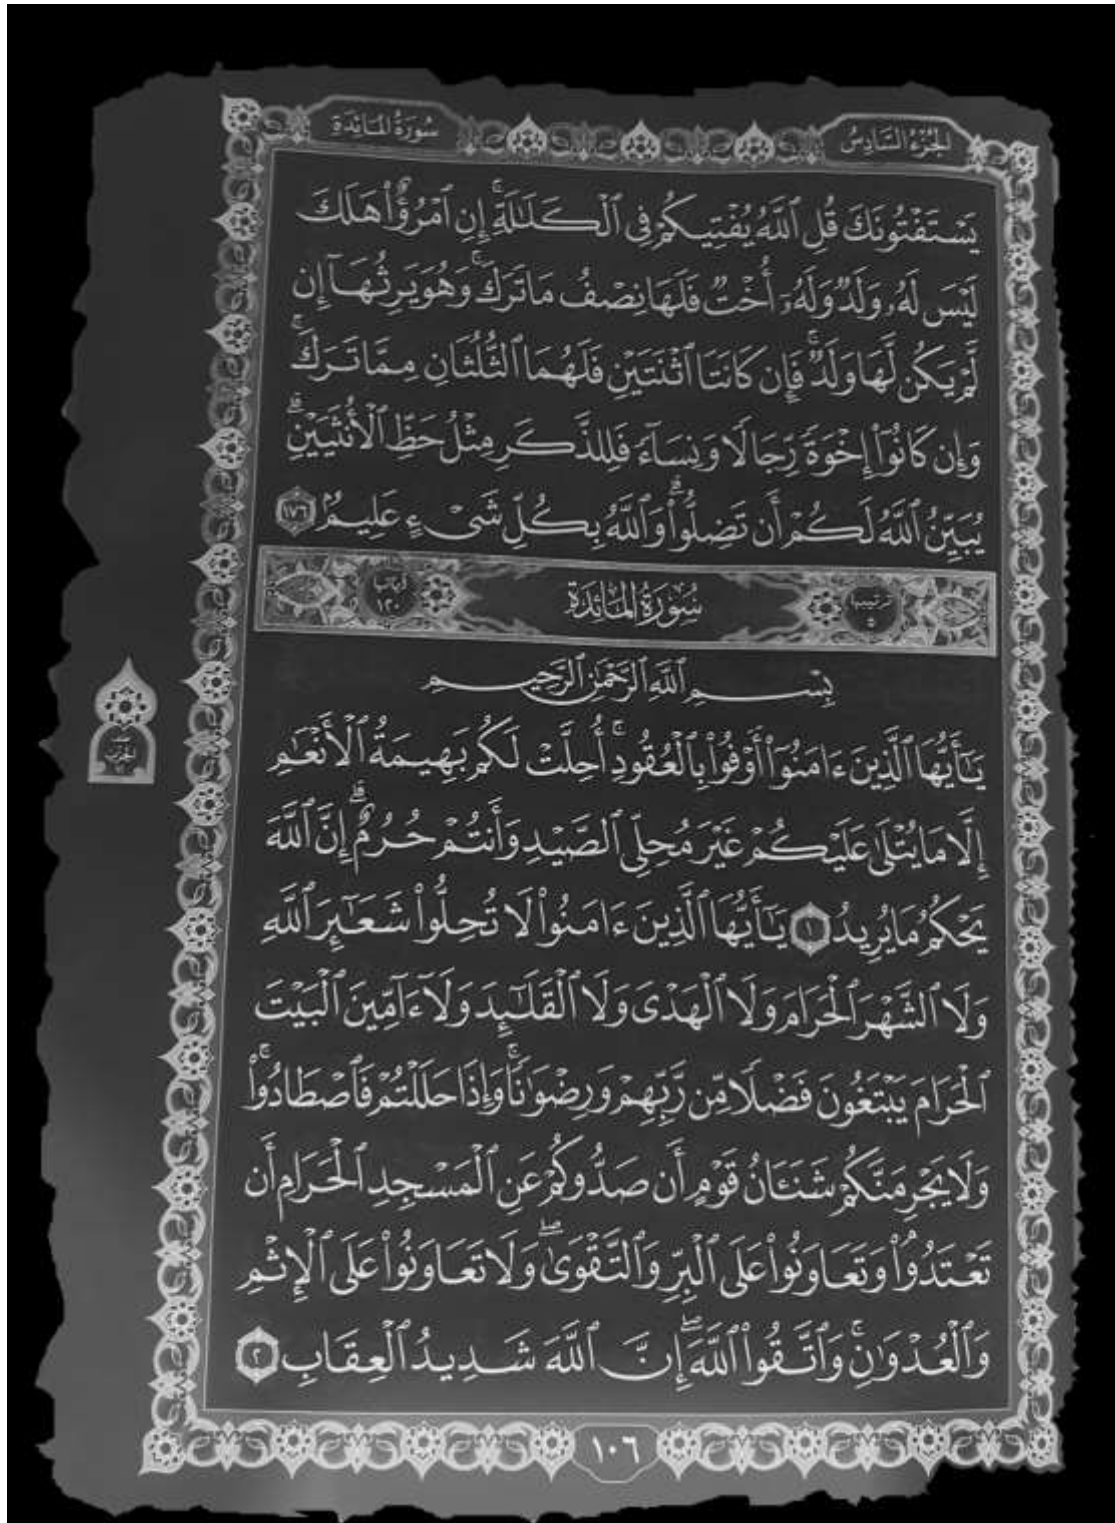 الجزء السادس
سورة المائدة
يَسْتَفْتُونَكَ قُلِ ٱللَّهُ يُفْتِيكُمْ فِى ٱلْكَلَٰلَةِ ۚ إِنِ ٱمْرُؤٌا۟ هَلَكَ
لَيْسَ لَهُۥ وَلَدٌ وَلَهُۥٓ أُخْتٌ فَلَهَا نِصْفُ مَا تَرَكَ ۚ وَهُوَ يَرِثُهَآ إِن
لَّمْ يَكُن لَّهَا وَلَدٌ ۚ فَإِن كَانَتَا ٱثْنَتَيْنِ فَلَهُمَا ٱلثُّلُثَانِ مِمَّا تَرَكَ ۚ
وَإِن كَانُوٓا۟ إِخْوَةً رِّجَالًا وَنِسَآءً فَلِلذَّكَرِ مِثْلُ حَظِّ ٱلْأُنثَيَيْنِ ۗ
يُبَيِّنُ ٱللَّهُ لَكُمْ أَن تَضِلُّوا۟ ۗ وَٱللَّهُ بِكُلِّ شَىْءٍ عَلِيمٌۢ ١٧٦
ترتيبها ٥ سُورَةُ المَائِدَةِ آياتها ١٢٠
بِسْمِ ٱللَّهِ ٱلرَّحْمَٰنِ ٱلرَّحِيمِ
يَٰٓأَيُّهَا ٱلَّذِينَ ءَامَنُوٓا۟ أَوْفُوا۟ بِٱلْعُقُودِ ۚ أُحِلَّتْ لَكُم بَهِيمَةُ ٱلْأَنْعَٰمِ
إِلَّا مَا يُتْلَىٰ عَلَيْكُمْ غَيْرَ مُحِلِّى ٱلصَّيْدِ وَأَنتُمْ حُرُمٌ ۗ إِنَّ ٱللَّهَ
يَحْكُمُ مَا يُرِيدُ ١ يَٰٓأَيُّهَا ٱلَّذِينَ ءَامَنُوا۟ لَا تُحِلُّوا۟ شَعَٰٓئِرَ ٱللَّهِ
وَلَا ٱلشَّهْرَ ٱلْحَرَامَ وَلَا ٱلْهَدْىَ وَلَا ٱلْقَلَٰٓئِدَ وَلَآ ءَآمِّينَ ٱلْبَيْتَ
ٱلْحَرَامَ يَبْتَغُونَ فَضْلًا مِّن رَّبِّهِمْ وَرِضْوَٰنًا ۚ وَإِذَا حَلَلْتُمْ فَٱصْطَادُوا۟ ۚ
وَلَا يَجْرِمَنَّكُمْ شَنَـَٔانُ قَوْمٍ أَن صَدُّوكُمْ عَنِ ٱلْمَسْجِدِ ٱلْحَرَامِ أَن
تَعْتَدُوا۟ ۘ وَتَعَاوَنُوا۟ عَلَى ٱلْبِرِّ وَٱلتَّقْوَىٰ ۖ وَلَا تَعَاوَنُوا۟ عَلَى ٱلْإِثْمِ
وَٱلْعُدْوَٰنِ ۚ وَٱتَّقُوا۟ ٱللَّهَ ۖ إِنَّ ٱللَّهَ شَدِيدُ ٱلْعِقَابِ ٢
١٠٦